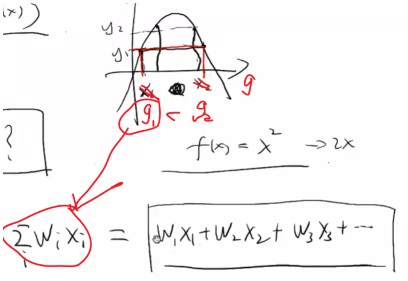 (x))
y₂
y₁
g
g₁ < g₂
f(x) = x² → 2x
?
Σ wᵢ xᵢ = w₁x₁ + w₂x₂ + w₃x₃ + ⋯
i